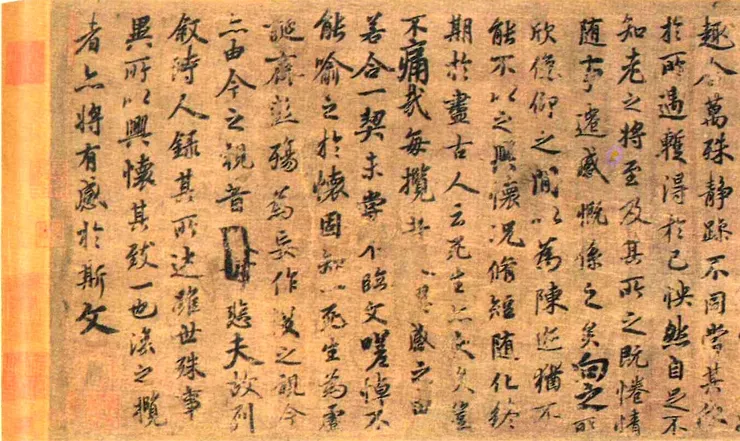 趣舍萬殊静躁不同當其欣
於所遇暫得於己怏然自足不
知老之將至及其所之既惓情
随事遷感慨係之矣向之所
欣俛仰之閒以為陳迹猶不
能不以之興懷況脩短随化終
期於盡古人云死生亦大矣豈
不痛哉每攬感之由
若合一契未嘗不臨文嗟悼不
能喻之於懷固知一死生為虛
誕齊彭殤為妄作後之視今
亦由今之視昔悲夫故列
敘時人錄其所述雖世殊事
異所以興懷其致一也後之攬
者亦將有感於斯文